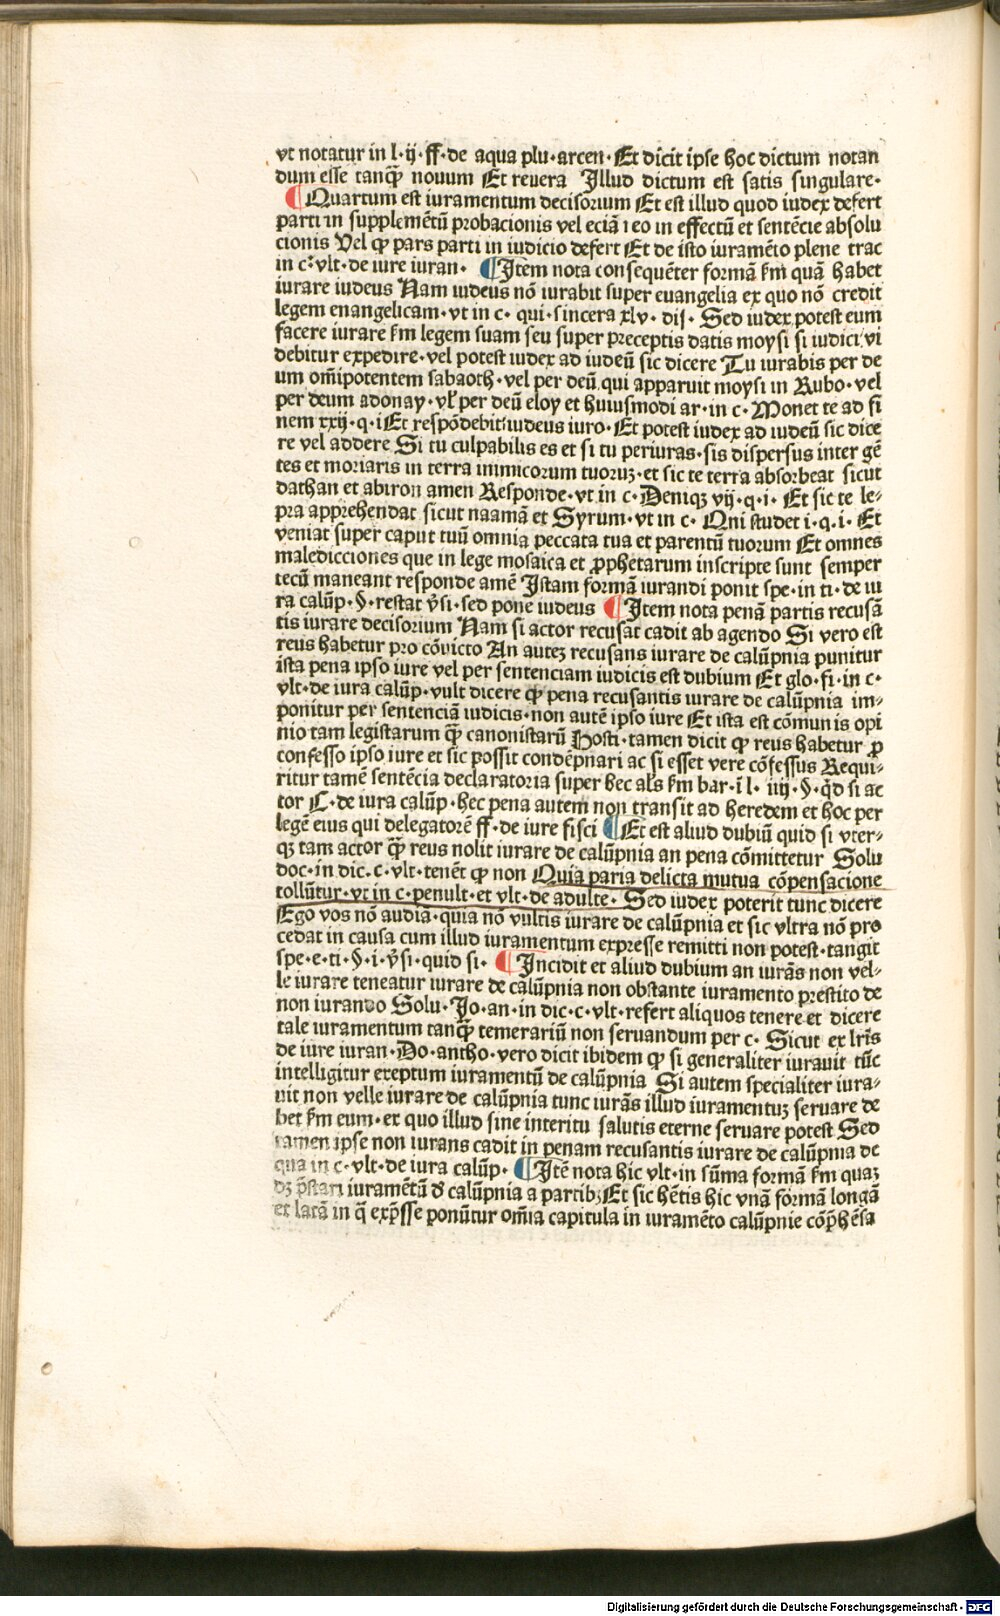 vt notatur in l·ij·ff·de aqua plu·arcen·Et dicit ipse hoc dictum notan
dum esse tanqȝ nouum Et reuera Illud dictum est satis singulare·
¶Quartum est iuramentum decisorium Et est illud quod iudex defert
parti in supplemētū probacionis vel eciā ideo in effectū et sentēcie absolu
cionis Vel qp pars parti in iudicio defert Et de isto iuramēto plene trac
in c·vlt·de iure iuran· ¶Item nota consequēter formā ẜm quā habet
iurare iudeus Nam iudeus nō iurabit super euangelia ex quo nō credit
legem euangelicam·vt in c·qui·sincera xlv·dis·Sed iudex potest eum
facere iurare ẜm legem suam seu super preceptis datis moysi si iudici vi
debitur expedire·vel potest iudex ad iudeū sic dicere Tu iurabis per de
um om̄ipotentem sabaoth·vel per deū qui apparuit moysi in Rubo·vel
per deum adonay·vl̕ per deū eloy et huiusmodi ar·in c·Monet te ad fi
nem xxij·q·i Et respōdebit iudeus iuro·Et potest iudex ad iudeū sic dice
re vel addere Si tu culpabilis es et si tu periuras·sis dispersus inter gē
tes et moriaris in terra inimicorum tuoruȝ·et sic te terra absorbeat sicut
dathan et abiron amen Responde·vt in c·Deniqȝ vij·q·i·Et sic te le⸗
pra apprehendat sicut naamā et Syrum·vt in c·Qui studet i·q·i·Et
veniat super caput tuū omnia peccata tua et parentū tuorum Et omnes
malediccciones que in lege mosaica et ꝓphetarum inscripte sunt semper
tecū maneant responde amē Istam formā iurandi ponit spe·in ti·de iu
ra calūp·§·restat v̄si·sed pone iudeus ¶Item nota penā partis recusā
tis iurare decisorium Nam si actor recusat cadit ab agendo Si vero est
reus habetur pro cōuicto An auteȝ recusans iurare de calūpnia punitur
ista pena ipso iure vel per sentenciam iudicis est dubium Et glo·fi·in c·
vlt·de iura calūp·vult dicere qp pena recusantis iurare de calūpnia im⸗
ponitur per sentenciā iudicis·non autē ipso iure Et ista est cōmunis opi
nio tam legistarum qȝ canonistarū Hosti·tamen dicit qp reus habetur ꝓ
confesso ipso iure et sic possit condēpnari ac si esset vere cōfessus Requi⸗
ritur tamē sentēcia declaratoria super hec al̕s ẜm bar·ī l·iiij·§·qd̄ si ac
tor C·de iura calūp·hec pena autem non transit ad heredem et hoc per
legē eius qui delegatorē ff·de iure fisci ¶Et est aliud dubiū quid si vter⸗
qȝ tam actor qȝ reus nolit iurare de calūpnia an pena cōmittetur Solu
doc·in dic·c·vlt·tenēt qp non Quia paria delicta mutua cōpensacione
tollūtur·vt in c·penult·et vlt·de adulte·Sed iudex poterit tunc dicere
Ego vos nō audiā·quia nō vultis iurare de calūpnia et sic vltra nō pro
cedat in causa cum illud iuramentum expresse remitti non potest·tangit
spe·e·ti·§·i·v̄si·quid si· ¶Incidit et aliud dubium an iurās non vel⸗
le iurare teneatur iurare de calūpnia non obstante iuramento prestito de
non iurando Solu·Jo·an·in dic·c·vlt·refert aliquos tenere et dicere
tale iuramentum tanqȝ temerariū non seruandum per c·Sicut ex lr̄is
de iure iuran·Do·antho·vero dicit ibidem qp si generaliter iurauit tūc
intelligitur exeptum iuramentū de calūpnia Si autem specialiter iura⸗
uit non velle iurare de calūpnia tunc iurās illud iuramentuȝ seruare de
bet ẜm eum·ex quo illud sine interitu salutis eterne seruare potest Sed
tamen ipse non iurans cadit in penam recusantis iurare de calūpnia de
qua in c·vlt·de iura calūp· ¶Itē nota hic vlt·in sūma formā ẜm quaȝ
dȝ p̄stari iuramētū d̕ calūpnia a partibȝ Et sic hētis hic vnā formā longā
et latā in q̄ exp̄sse ponūtur om̄ia capitula in iuramēto calūpnie cōp̄hēsa
Digitalisierung gefördert durch die Deutsche Forschungsgemeinschaft · DFG